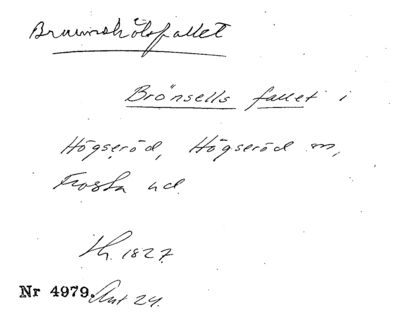 Brunnshölsfallet
Brönsells fallet i
Högseröd, Högseröd sn,
Frosta hd.
Lh. 1827.
Nr 4979. Ant 24.